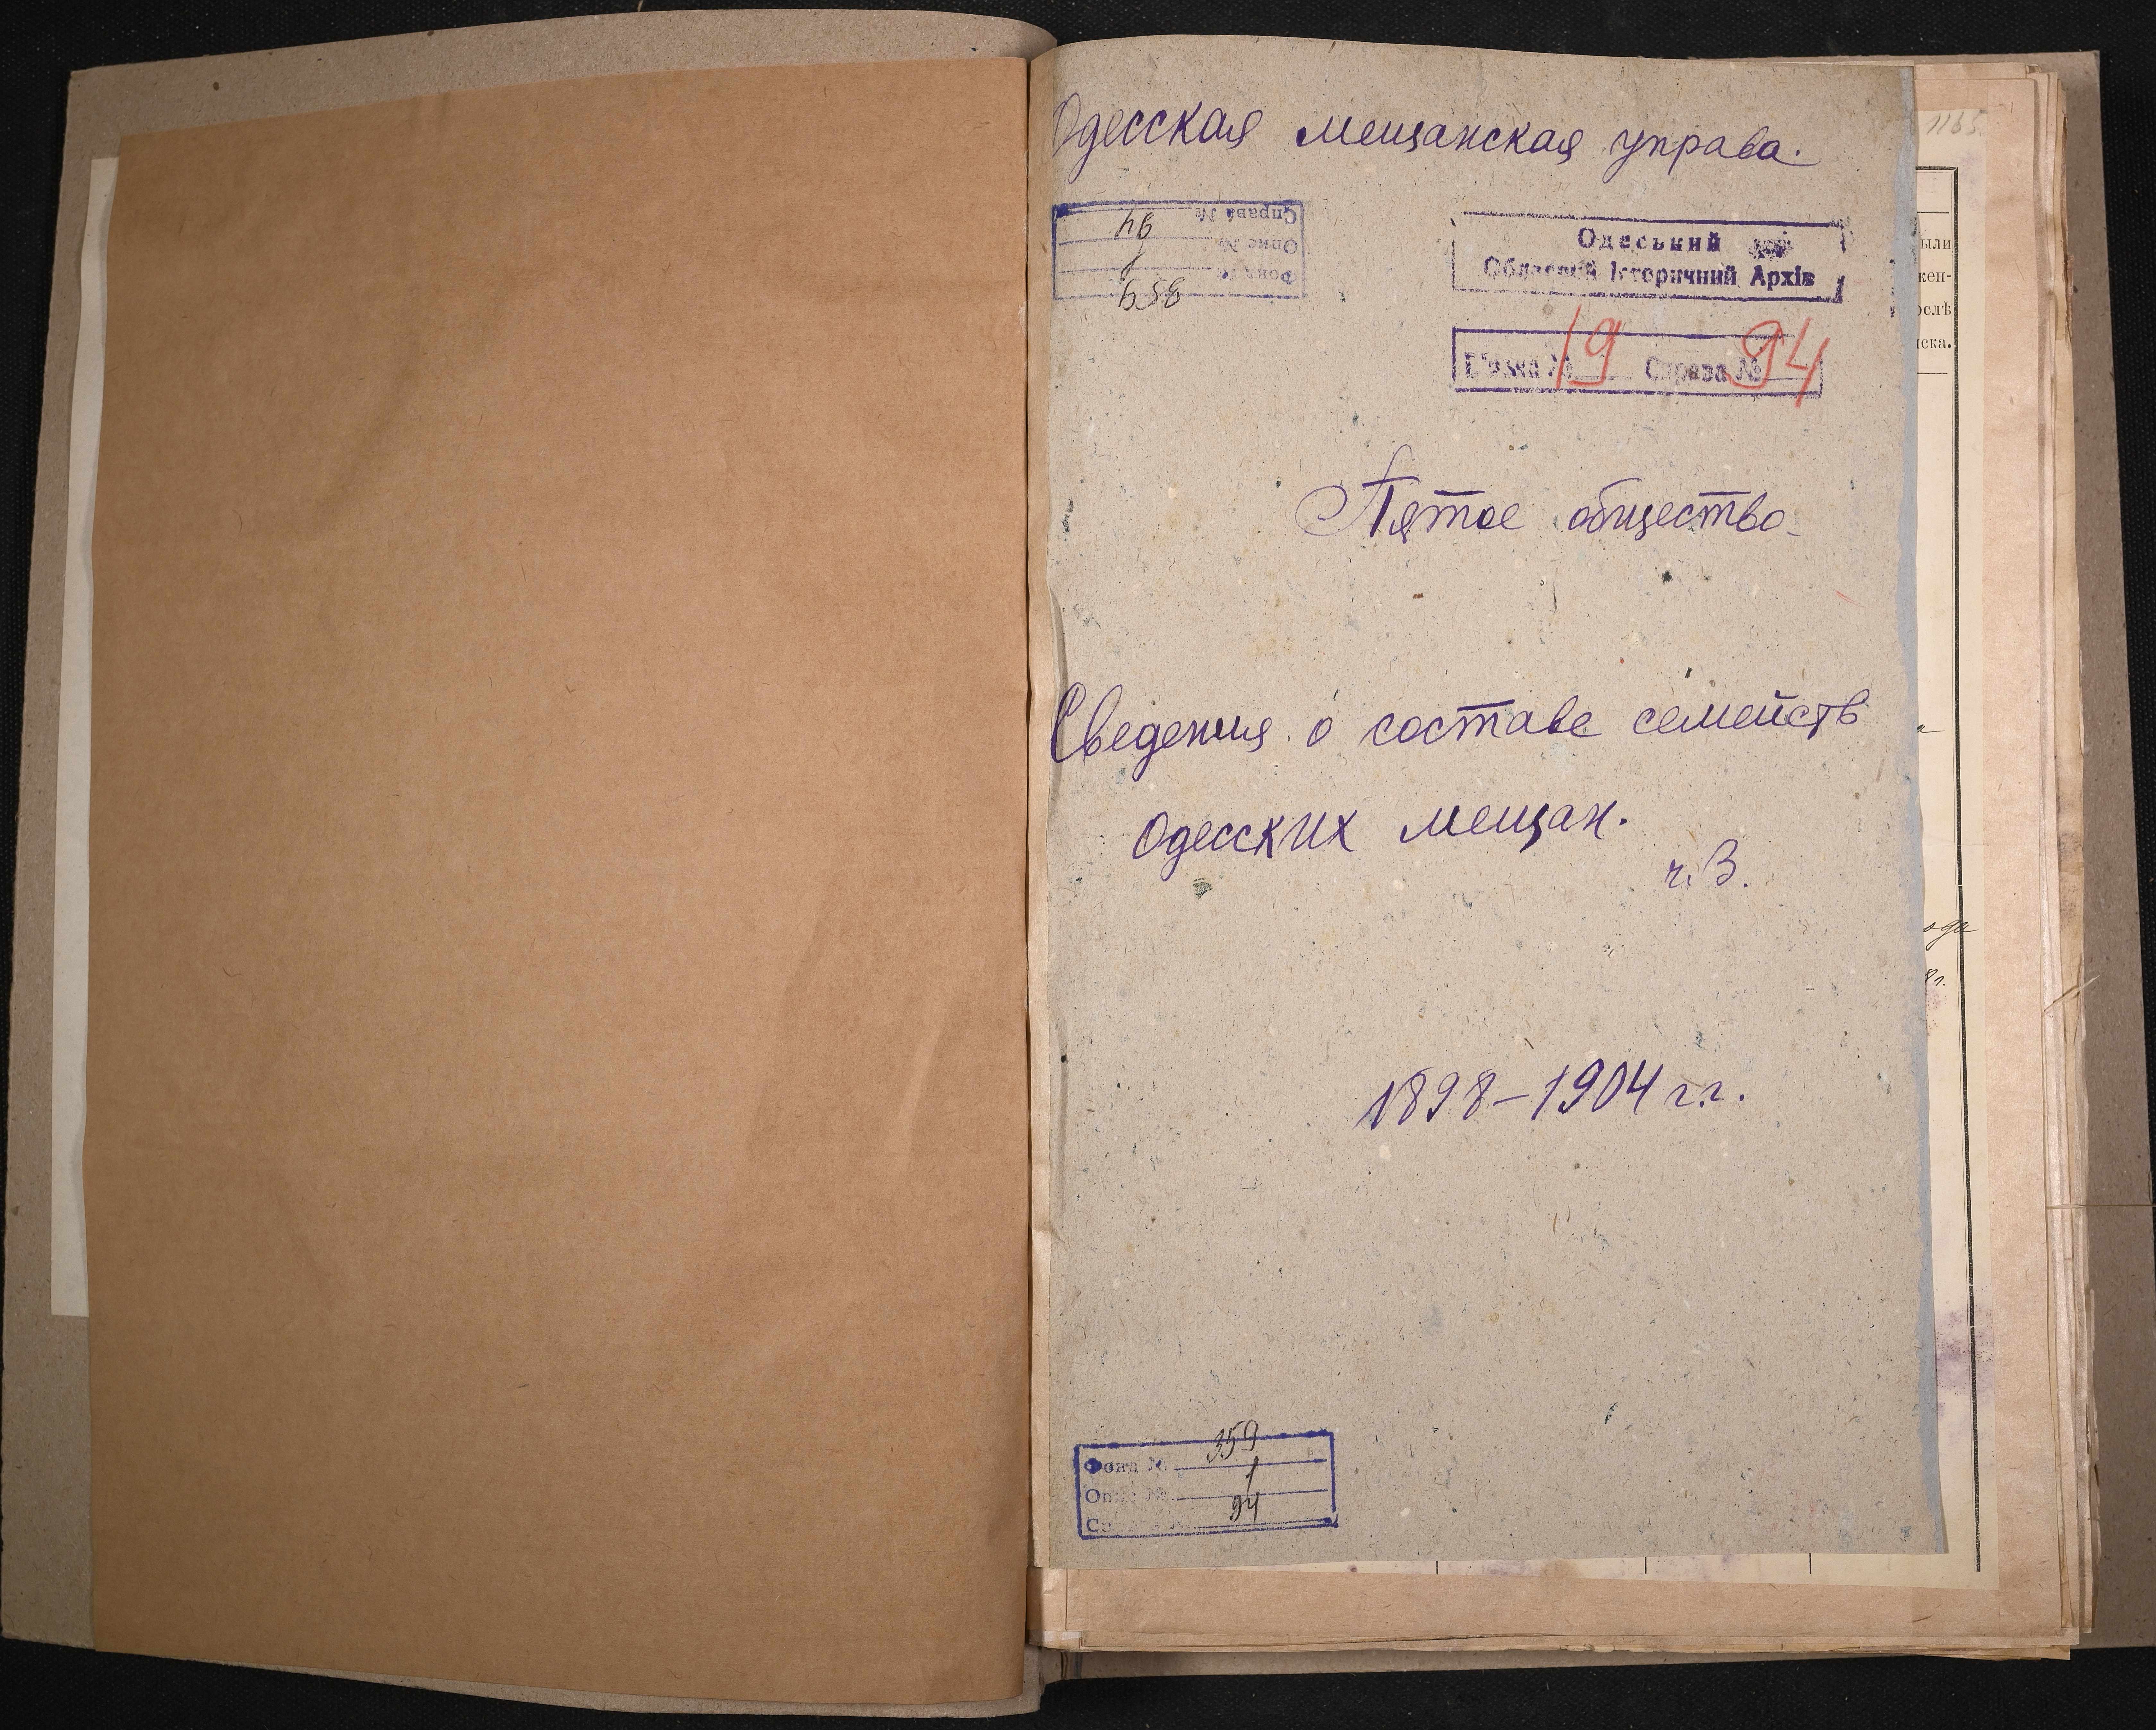 Одесская мещанская управа.
Справа № 94
Опис № 1
Фонд № 359
Одеський
Обласний Історичний Архів
В'язка № 19 Справа № 94
Пятое общество
Сведения о составе семейств
одесских мещан.
ч. 3.
1898-1904 г.г.
Фонд № 359
Опис № 1
94
1165
ыли
жен-
ослѣ
иска.